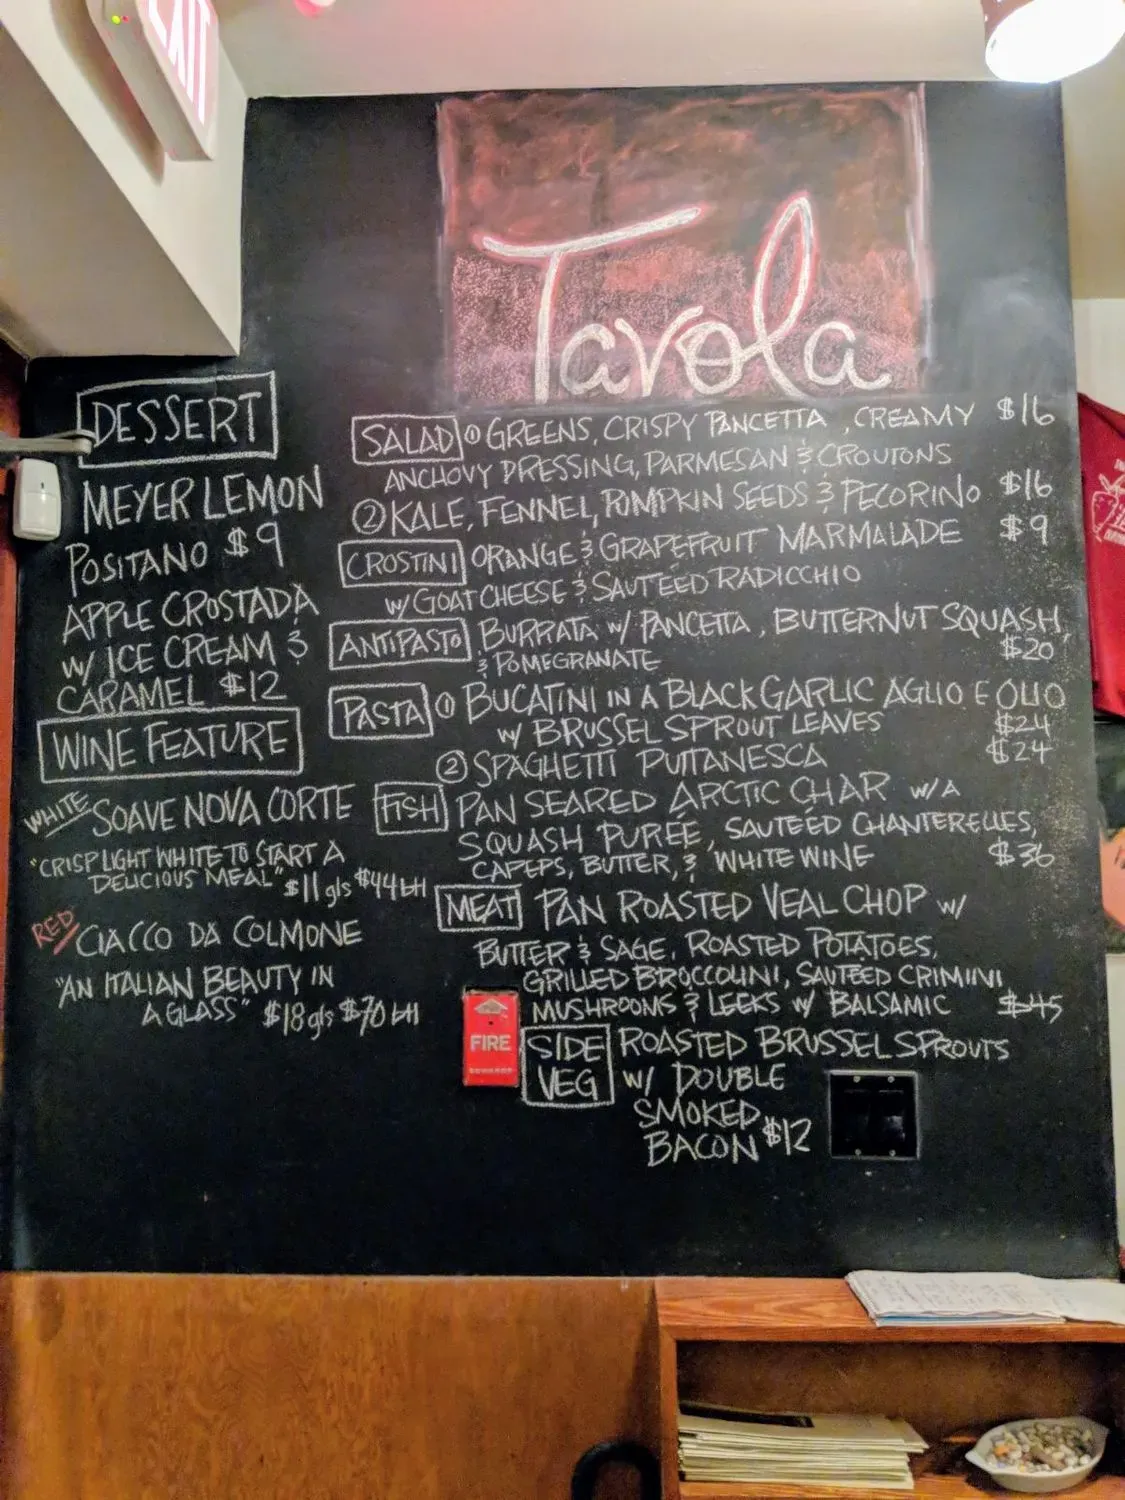 EXIT
Tavola
DESSERT
MEYER LEMON
POSITANO $9
APPLE CROSTADA
W/ ICE CREAM &
CARAMEL $12
WINE FEATURE
WHITE SOAVE NOVA CORTE
"CRISP LIGHT WHITE TO START A
DELICIOUS MEAL" $11 gls $44 btl
RED CIACCO DA COLMONE
"AN ITALIAN BEAUTY IN
A GLASS" $18 gls $70 btl
SALAD ① GREENS, CRISPY PANCETTA, CREAMY $16
ANCHOVY DRESSING, PARMESAN & CROUTONS
② KALE, FENNEL, PUMPKIN SEEDS & PECORINO $16
CROSTINI ORANGE & GRAPEFRUIT MARMALADE $9
W/ GOAT CHEESE & SAUTEED RADICCHIO
ANTIPASTO BURRATA W/ PANCETTA, BUTTERNUT SQUASH,
& POMEGRANATE $20
PASTA ① BUCATINI IN A BLACK GARLIC AGLIO E OLIO
W/ BRUSSEL SPROUT LEAVES $24
② SPAGHETTI PUTTANESCA $24
FISH PAN SEARED ARCTIC CHAR W/ A
SQUASH PURÉE, SAUTEED CHANTERELLES,
CAPEPS, BUTTER, & WHITE WINE $36
MEAT PAN ROASTED VEAL CHOP W/
BUTTER & SAGE, ROASTED POTATOES,
GRILLED BROCCOLINI, SAUTEED CRIMINI
MUSHROOMS & LEEKS W/ BALSAMIC $45
SIDE VEG ROASTED BRUSSEL SPROUTS
W/ DOUBLE
SMOKED
BACON $12
FIRE